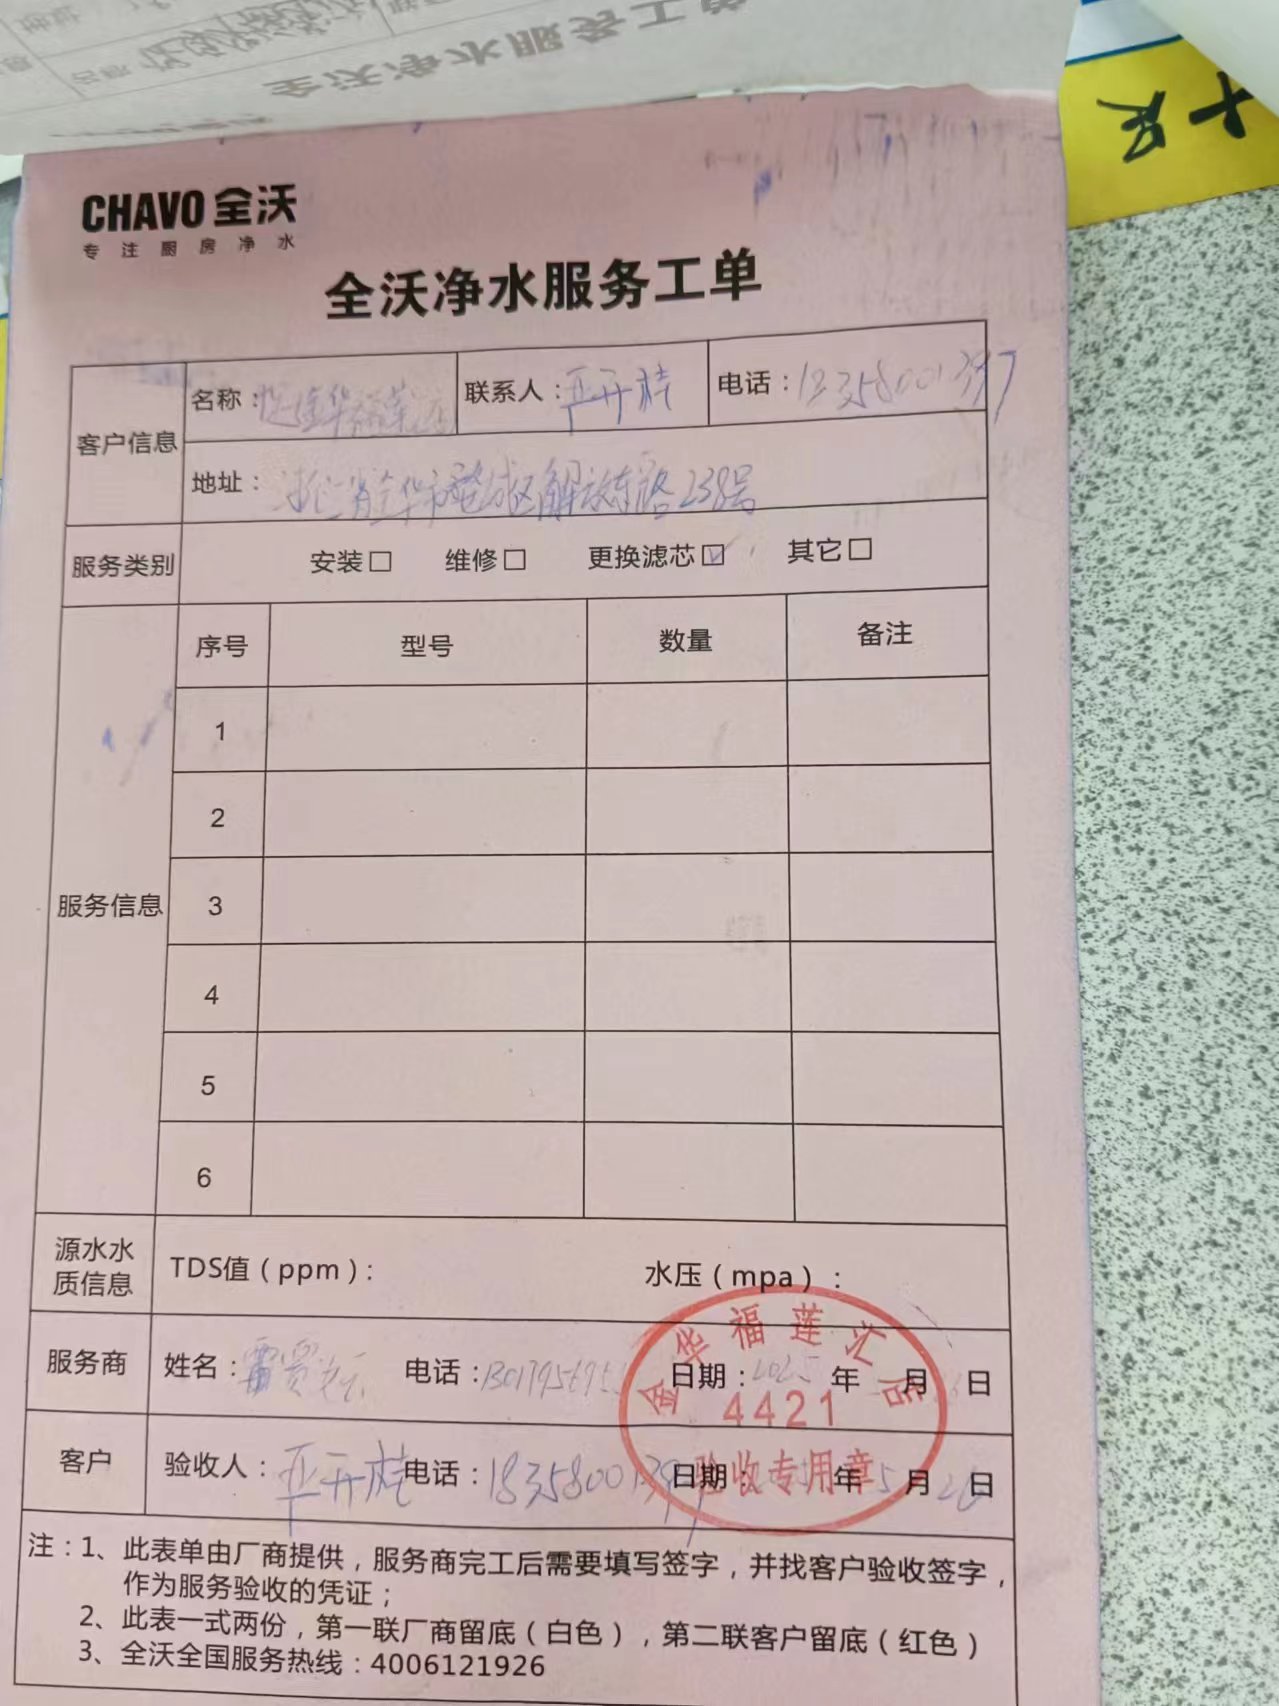 全沃净水服务工单
CHAVO 全沃
专注厨房净水
全沃净水服务工单
客户信息
名称： 联系人：严开桂 电话：
地址：浙江省金华市婺城区解放东路238号
服务类别 安装□ 维修□ 更换滤芯☑ 其它□
服务信息
序号 型号 数量 备注
1
2
3
4
5
6
源水水质信息 TDS值（ppm）： 水压（mpa）：
服务商 姓名： 电话： 日期：2025 年 月 日
客户 验收人：严开桂 电话： 日期： 年 5 月 日
金华福莲汇店
4421
验收专用章
注：1、此表单由厂商提供，服务商完工后需要填写签字，并找客户验收签字，
作为服务验收的凭证；
2、此表一式两份，第一联厂商留底（白色），第二联客户留底（红色）
3、全沃全国服务热线：4006121926